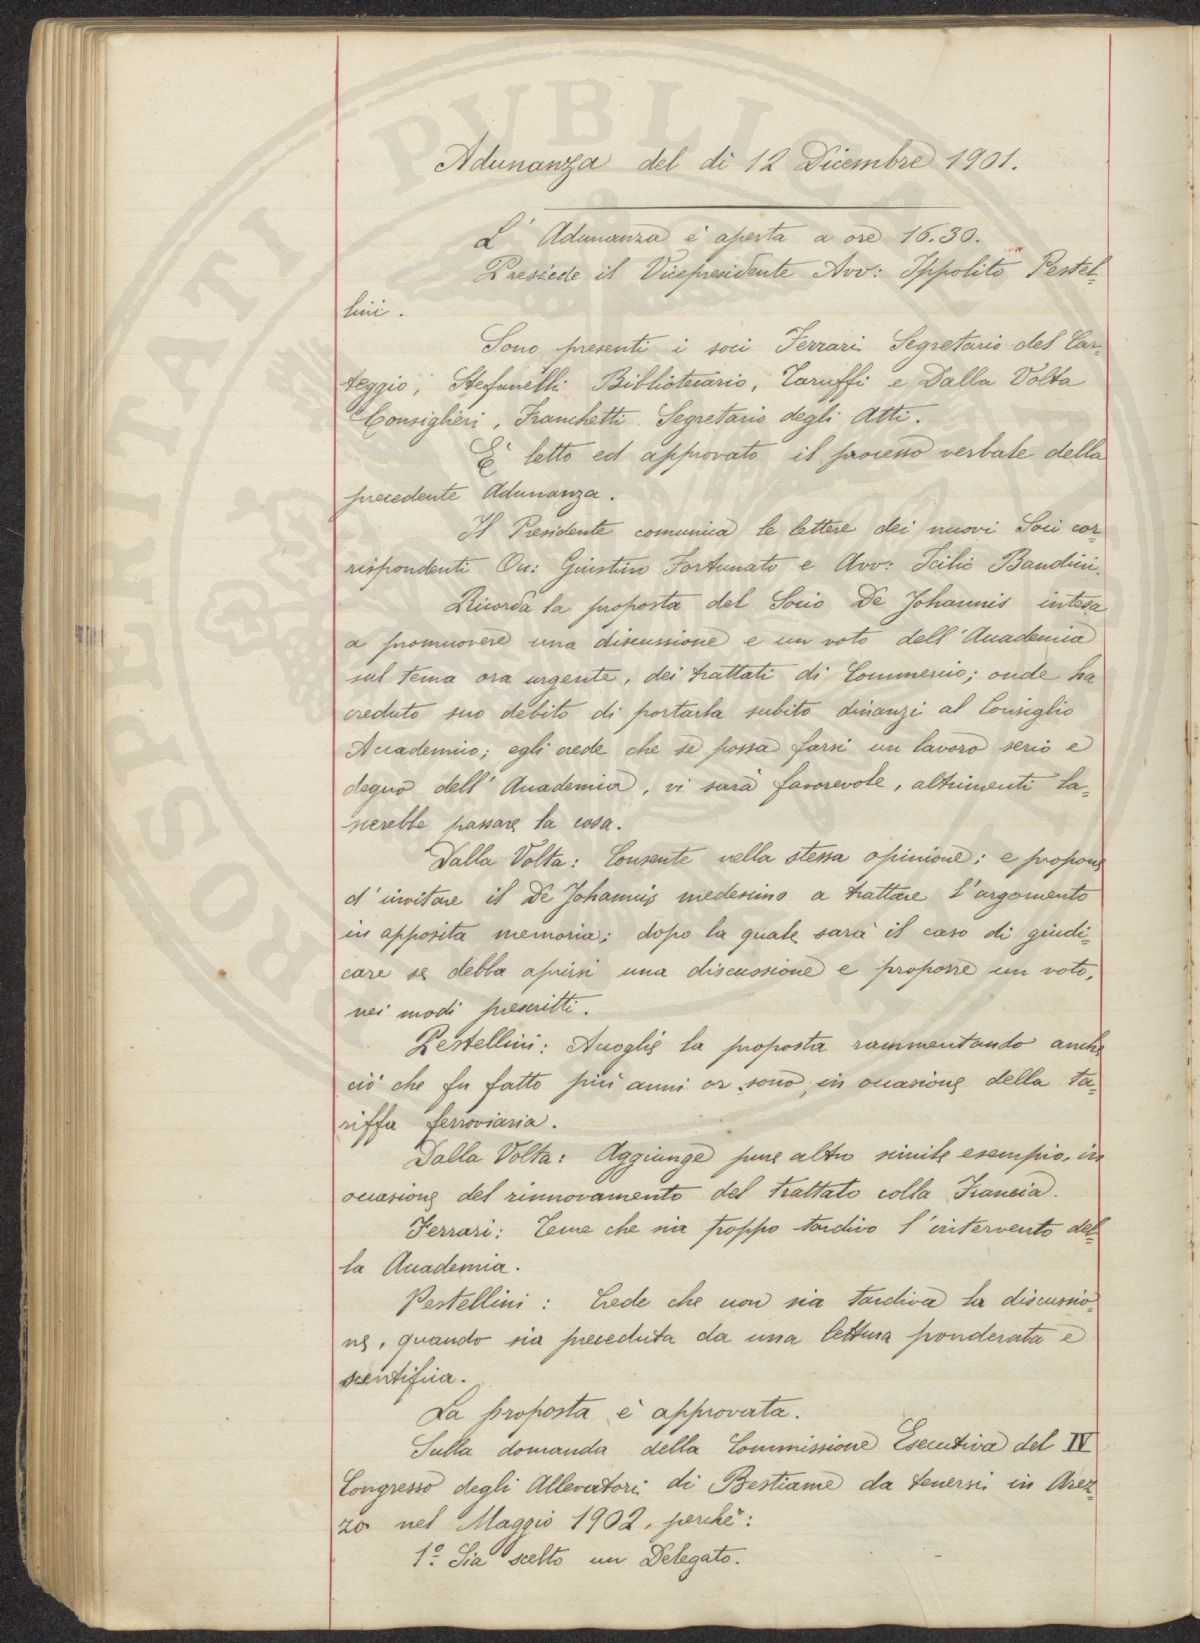 Adunanza del dì 12 Dicembre 1901.
L'Adunanza è aperta a ore 16.30.
Presiede il Vicepresidente Avv: Ippolito Pestel-
lini.
Sono presenti i soci Ferrari Segretario del Car-
teggio, Stefanelli Bibliotecario, Taruffi e Dalla Volta
Consiglieri, Franchetti Segretario degli Atti.
È letto ed approvato il processo verbale della
precedente Adunanza.
Il Presidente comunica le lettere dei nuovi Soci cor-
rispondenti On: Giustino Fortunato e Avv: Icilio Bandini.
Ricorda la proposta del Socio De Johannis intesa
a promuovere una discussione e un voto dell'Accademia
sul tema ora urgente, dei trattati di Commercio; onde ha
creduto suo debito di portarla subito dinanzi al Consiglio
Accademico; egli crede che se possa farsi un lavoro serio e
degno dell'Accademia, vi sarà favorevole, altrimenti la-
scerebbe passare la cosa.
Dalla Volta: Consente nella stessa opinione; e propone
d'invitare il De Johannis medesimo a trattare l'argomento
in apposita memoria; dopo la quale sarà il caso di giudi-
care se debba aprirsi una discussione e proporre un voto,
nei modi prescritti.
Pestellini: Accoglie la proposta rammentando anche
ciò che fu fatto più anni or sono, in occasione della ta-
riffa ferroviaria.
Dalla Volta: Aggiunge pure altro simile esempio, in
occasione del rinnovamento del trattato colla Francia.
Ferrari: Teme che sia troppo tardivo l'intervento del-
la Accademia.
Pestellini: Crede che non sia tardiva la discussio-
ne, quando sia preceduta da una lettura ponderata e
scentifica.
La proposta è approvata.
Sulla domanda della Commissione Esecutiva del IV
Congresso degli Allevatori di Bestiame da tenersi in Arez-
zo nel Maggio 1902, perchè:
1º Sia scelto un Delegato.
PROSPERITATI PUBLICAE